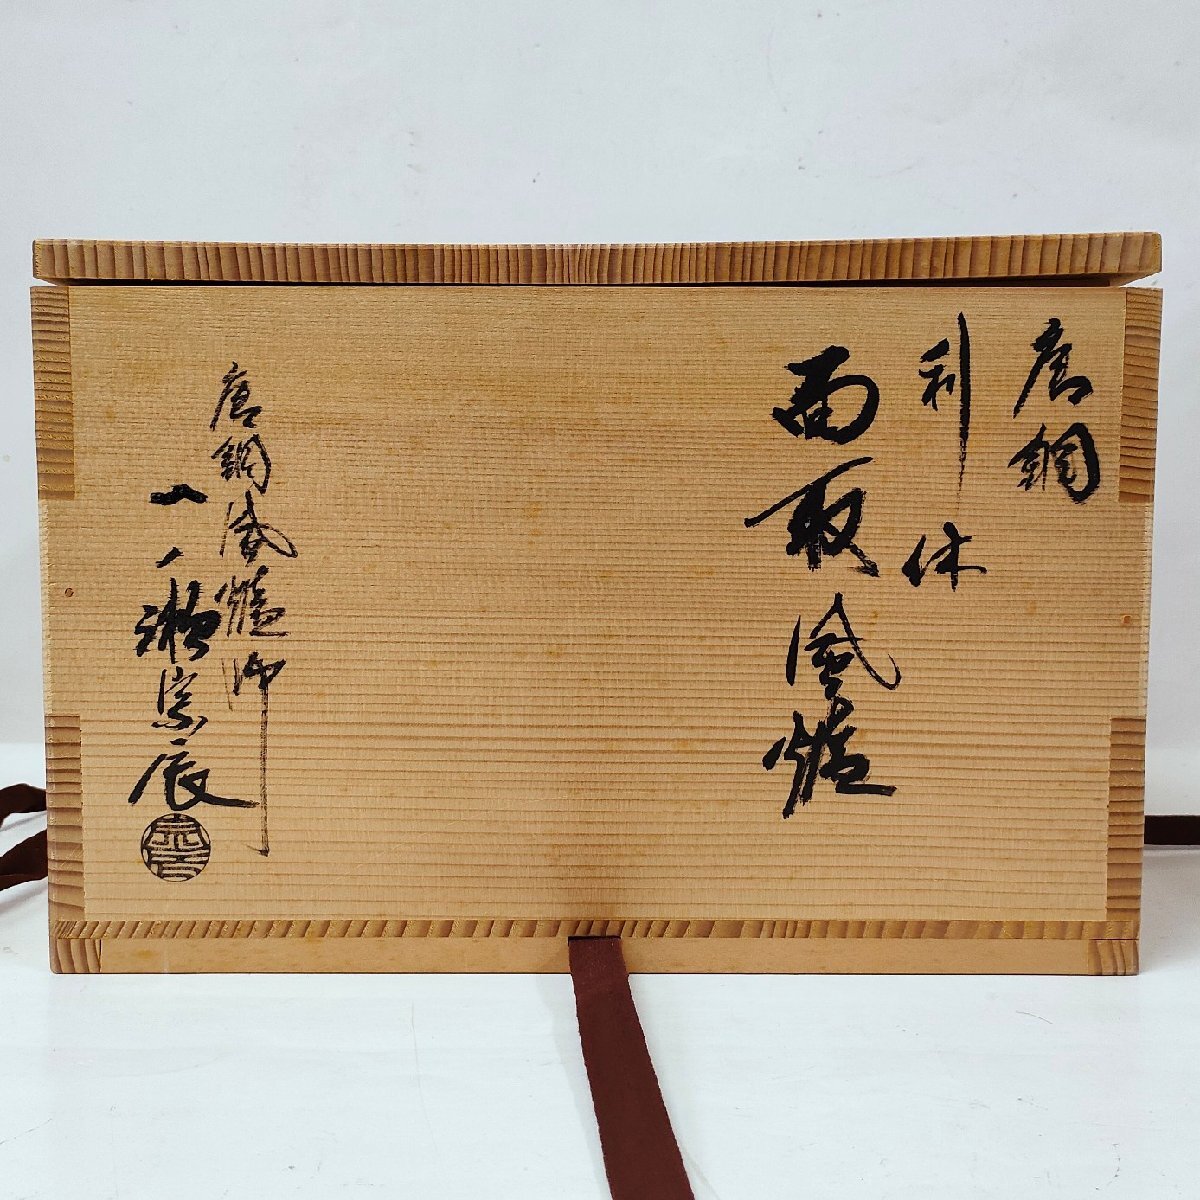 唐銅
利休
面取風爐
唐銅風爐師
一ノ瀬宗辰